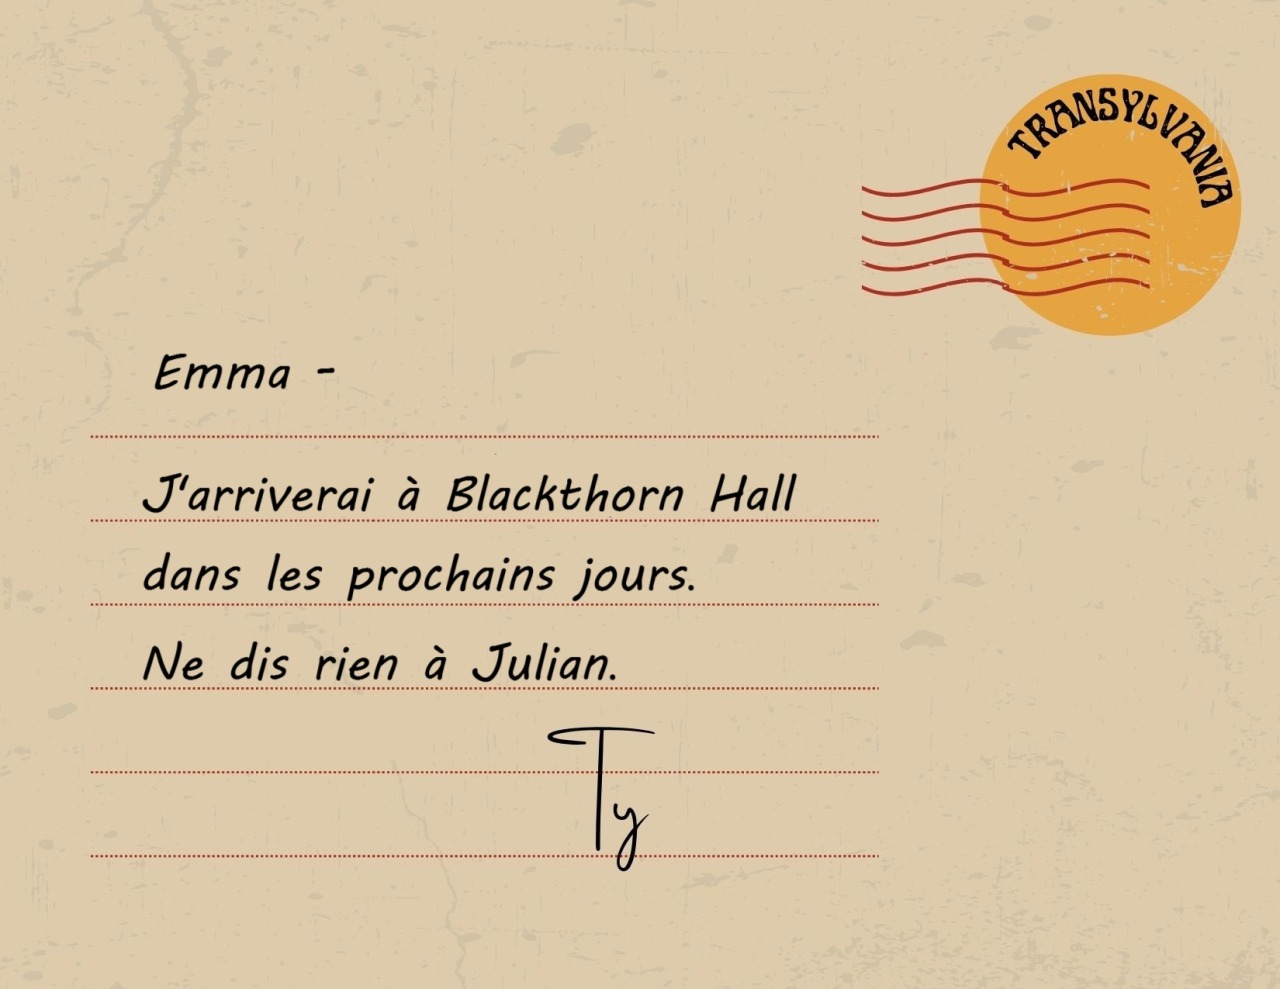 TRANSYLVANIA
Emma -
J'arriverai à Blackthorn Hall
dans les prochains jours.
Ne dis rien à Julian.
Ty